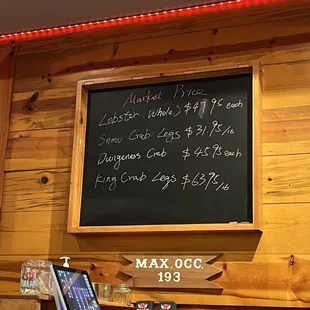 Market Price
Lobster (Whole) $47.95 each
Snow Crab Legs $31.95/lb
Dungeness Crab $45.95 each
King Crab Legs $63.95/lb
MAX. OCC.
193